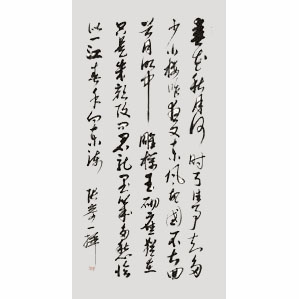 春花秋月何时了往事知多
少小楼昨夜又东风故國不堪回
首月明中雕欄玉砌應猶在
只是朱颜改问君能有几多愁恰
似一江春水向东流